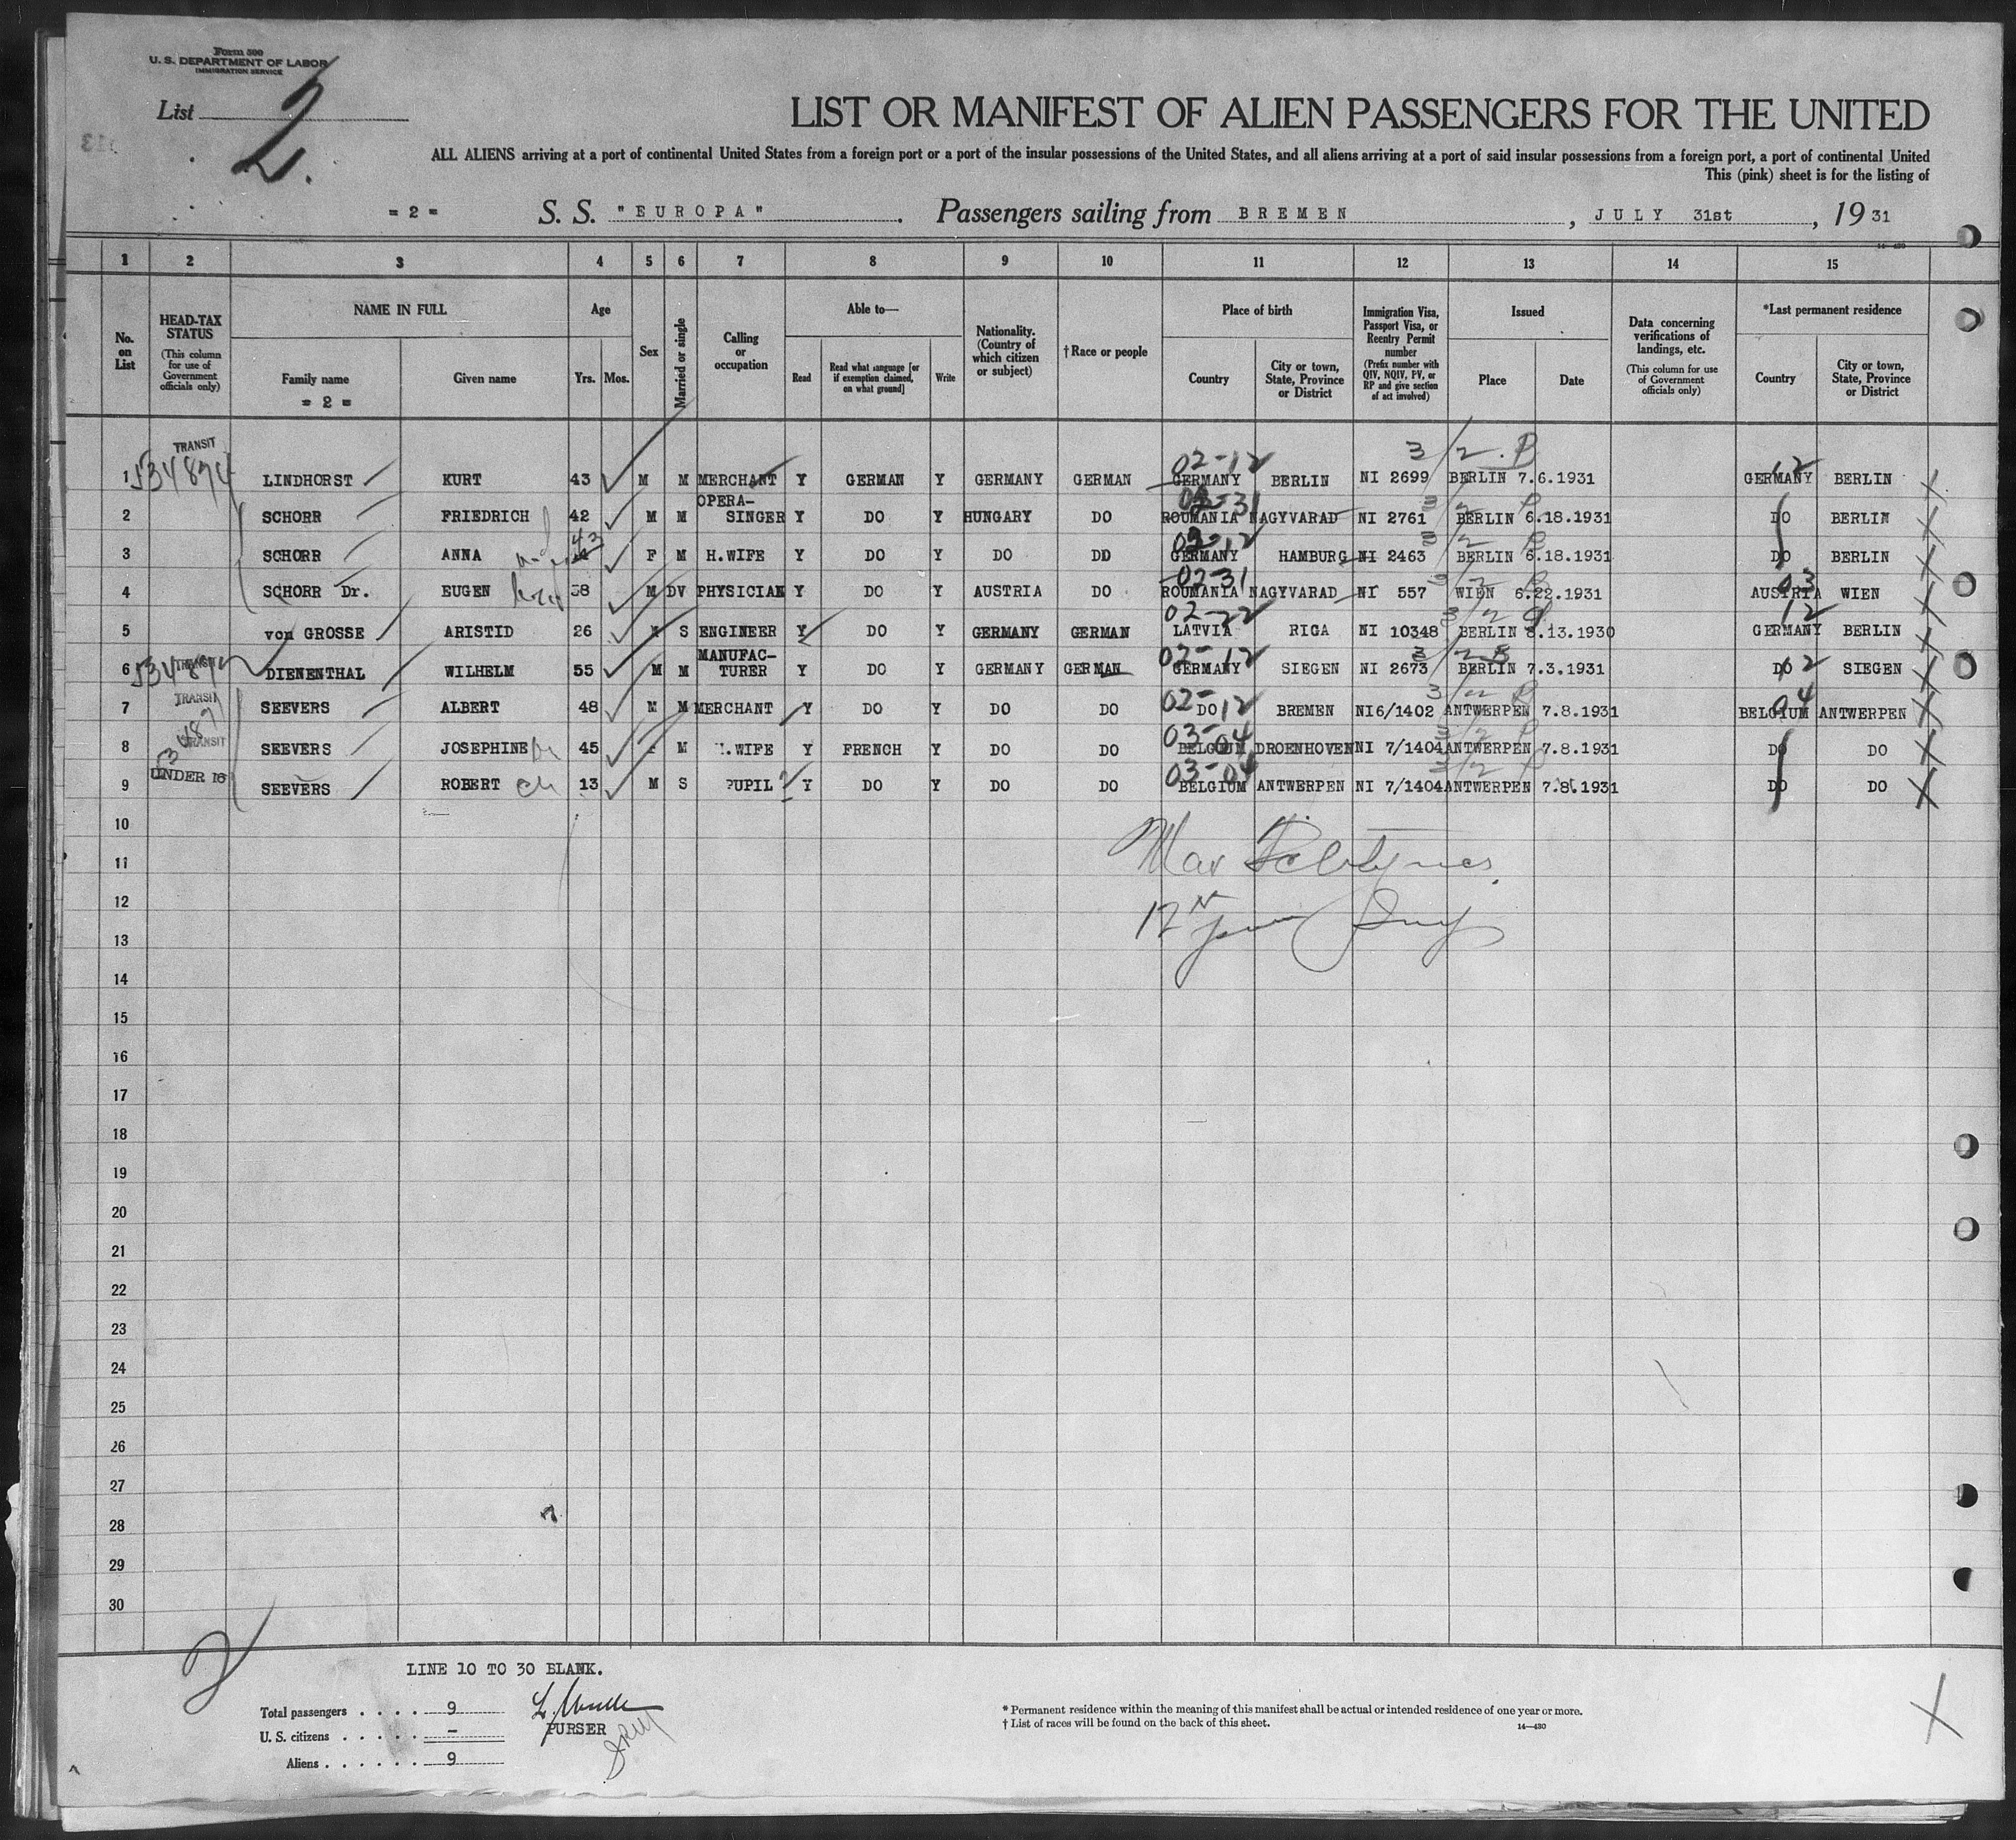 Form 500
U. S. DEPARTMENT OF LABOR
IMMIGRATION SERVICE
List 2.
LIST OR MANIFEST OF ALIEN PASSENGERS FOR THE UNITED
ALL ALIENS arriving at a port of continental United States from a foreign port or a port of the insular possessions of the United States, and all aliens arriving at a port of said insular possessions from a foreign port, a port of continental United
This (pink) sheet is for the listing of
= 2 = S. S. "EUROPA" . Passengers sailing from BREMEN , JULY 31st , 19 31
14—430
1 2 3 4 5 6 7 8 9 10 11 12 13 14 15
No. on List
HEAD-TAX STATUS (This column for use of Government officials only)
NAME IN FULL
Family name = 2 =
Given name
Age
Yrs. Mos.
Sex
Married or single
Calling or occupation
Able to—
Read
Read what language [or if exemption claimed, on what ground]
Write
Nationality. (Country of which citizen or subject)
†Race or people
Place of birth
Country
City or town, State, Province or District
Immigration Visa, Passport Visa, or Reentry Permit number (Prefix number with QIV, NQIV, PV, or RP and give section of act involved)
Issued
Place
Date
Data concerning verifications of landings, etc. (This column for use of Government officials only)
*Last permanent residence
Country
City or town, State, Province or District
TRANSIT 02-12 3/2 . B 12
1 LINDHORST KURT 43 M M MERCHANT Y GERMAN Y GERMANY GERMAN GERMANY BERLIN NI 2699 BERLIN 7.6.1931 GERMANY BERLIN
2 SCHORR FRIEDRICH 42 M M OPERA-SINGER Y DO Y HUNGARY DO ROUMANIA NAGYVARAD NI 2761 BERLIN 6.18.1931 DO BERLIN
3 SCHORR ANNA 43 F M H.WIFE Y DO Y DO DO GERMANY HAMBURG NI 2463 BERLIN 6.18.1931 DO BERLIN
02-31 03
4 SCHORR Dr. EUGEN 38 M DV PHYSICIAN Y DO Y AUSTRIA DO ROUMANIA NAGYVARAD NI 557 WIEN 6.22.1931 AUSTRIA WIEN
02-22 12
5 von GROSSE ARISTID 26 M S ENGINEER Y DO Y GERMANY GERMAN LATVIA RIGA NI 10348 BERLIN 8.13.1930 GERMANY BERLIN
TRANSIT 02-12 12
6 DIENENTHAL WILHELM 55 M M MANUFAC-TURER Y DO Y GERMANY GERMAN GERMANY SIEGEN NI 2673 BERLIN 7.3.1931 DO SIEGEN
TRANSIT 02-12 04
7 SEEVERS ALBERT 48 M M MERCHANT Y DO Y DO DO DO BREMEN NI6/1402 ANTWERPEN 7.8.1931 BELGIUM ANTWERPEN
TRANSIT 03-04
8 SEEVERS JOSEPHINE 45 F M H.WIFE Y FRENCH Y DO DO BELGIUM DROENHOVEN NI 7/1404 ANTWERPEN 7.8.1931 DO DO
UNDER 16 03-04
9 SEEVERS ROBERT ch 13 M S PUPIL Y DO Y DO DO BELGIUM ANTWERPEN NI 7/1404 ANTWERPEN 7.8.1931 DO DO
10
11 Max
12
13
14
15
16
17
18
19
20
21
22
23
24
25
26
27
28
29
30
2
LINE 10 TO 30 BLANK.
Total passengers . . . . 9
U. S. citizens . . . . . –
Aliens . . . . . . 9
PURSER
* Permanent residence within the meaning of this manifest shall be actual or intended residence of one year or more.
† List of races will be found on the back of this sheet.
14—430